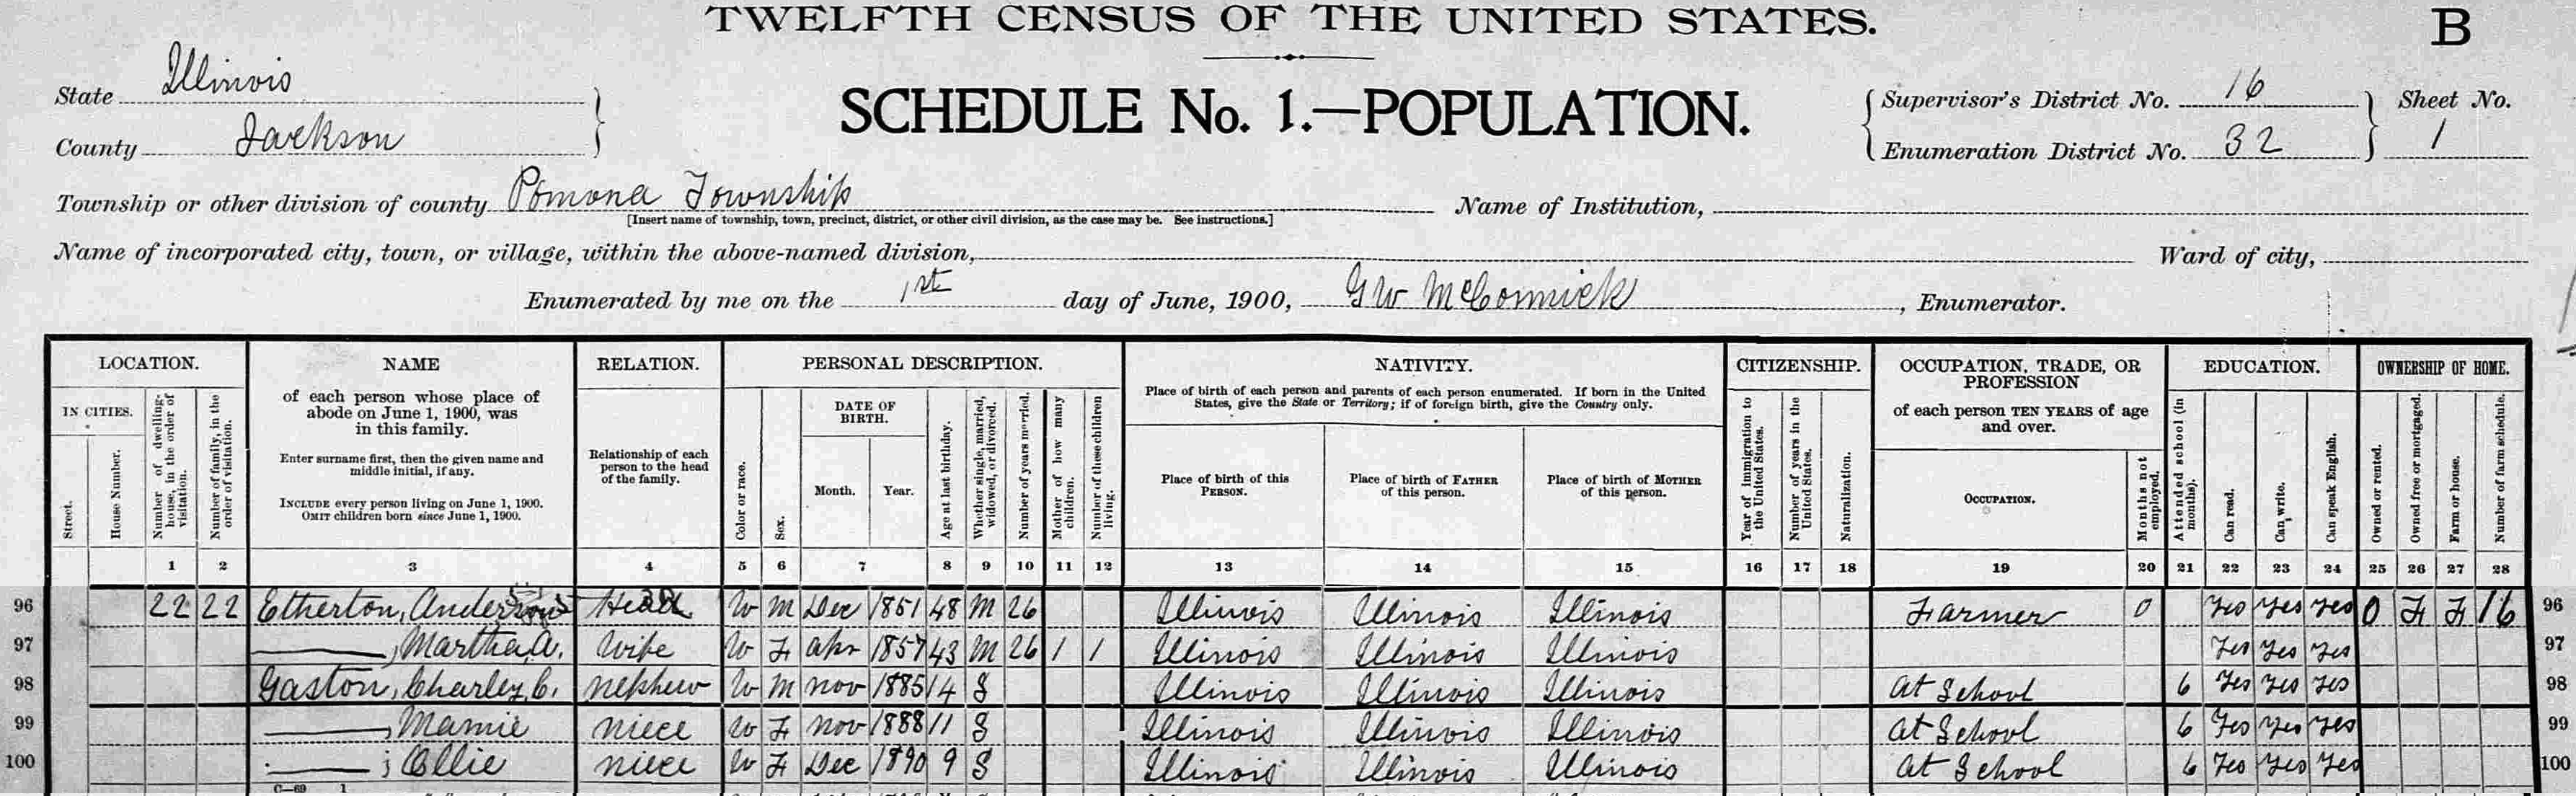 TWELFTH CENSUS OF THE UNITED STATES.
B
State Illinois
County Jackson
SCHEDULE No. 1.—POPULATION.
Supervisor's District No. 16
Enumeration District No. 32
Sheet No.
1
Township or other division of county Pomona Township
[Insert name of township, town, precinct, district, or other civil division, as the case may be. See instructions.]
Name of Institution,
Name of incorporated city, town, or village, within the above-named division,
Ward of city,
Enumerated by me on the 1st day of June, 1900, G W McCormick, Enumerator.
LOCATION.
IN CITIES.
Street.
House Number.
Number of dwelling-house, in the order of visitation.
Number of family, in the order of visitation.
NAME
of each person whose place of
abode on June 1, 1900, was
in this family.
Enter surname first, then the given name and
middle initial, if any.
INCLUDE every person living on June 1, 1900.
OMIT children born since June 1, 1900.
RELATION.
Relationship of each
person to the head
of the family.
PERSONAL DESCRIPTION.
Color or race.
Sex.
DATE OF
BIRTH.
Month.
Year.
Age at last birthday.
Whether single, married, widowed, or divorced.
Number of years married.
Mother of how many children.
Number of these children living.
NATIVITY.
Place of birth of each person and parents of each person enumerated. If born in the United
States, give the State or Territory; if of foreign birth, give the Country only.
Place of birth of this
PERSON.
Place of birth of FATHER
of this person.
Place of birth of MOTHER
of this person.
CITIZENSHIP.
Year of immigration to the United States.
Number of years in the United States.
Naturalization.
OCCUPATION, TRADE, OR
PROFESSION
of each person TEN YEARS of age
and over.
OCCUPATION.
Months not employed.
EDUCATION.
Attended school (in months).
Can read.
Can write.
Can speak English.
OWNERSHIP OF HOME.
Owned or rented.
Owned free or mortgaged.
Farm or house.
Number of farm schedule.
1 2 3 4 5 6 7 8 9 10 11 12 13 14 15 16 17 18 19 20 21 22 23 24 25 26 27 28
96 22 22 Etherton, Anderson Head W M Dec 1851 48 M 26 Illinois Illinois Illinois Farmer 0 Yes Yes Yes O F F 16 96
97 ——, Martha A. Wife W F Apr 1857 43 M 26 1 1 Illinois Illinois Illinois Yes Yes Yes 97
98 Gaston, Charley C. nephew W M Nov 1885 14 S Illinois Illinois Illinois At School 6 Yes Yes Yes 98
99 ——, Mamie niece W F Nov 1888 11 S Illinois Illinois Illinois At School 6 Yes Yes Yes 99
100 ——, Ollie niece W F Dec 1890 9 S Illinois Illinois Illinois At School 6 Yes Yes Yes 100
C—69 1